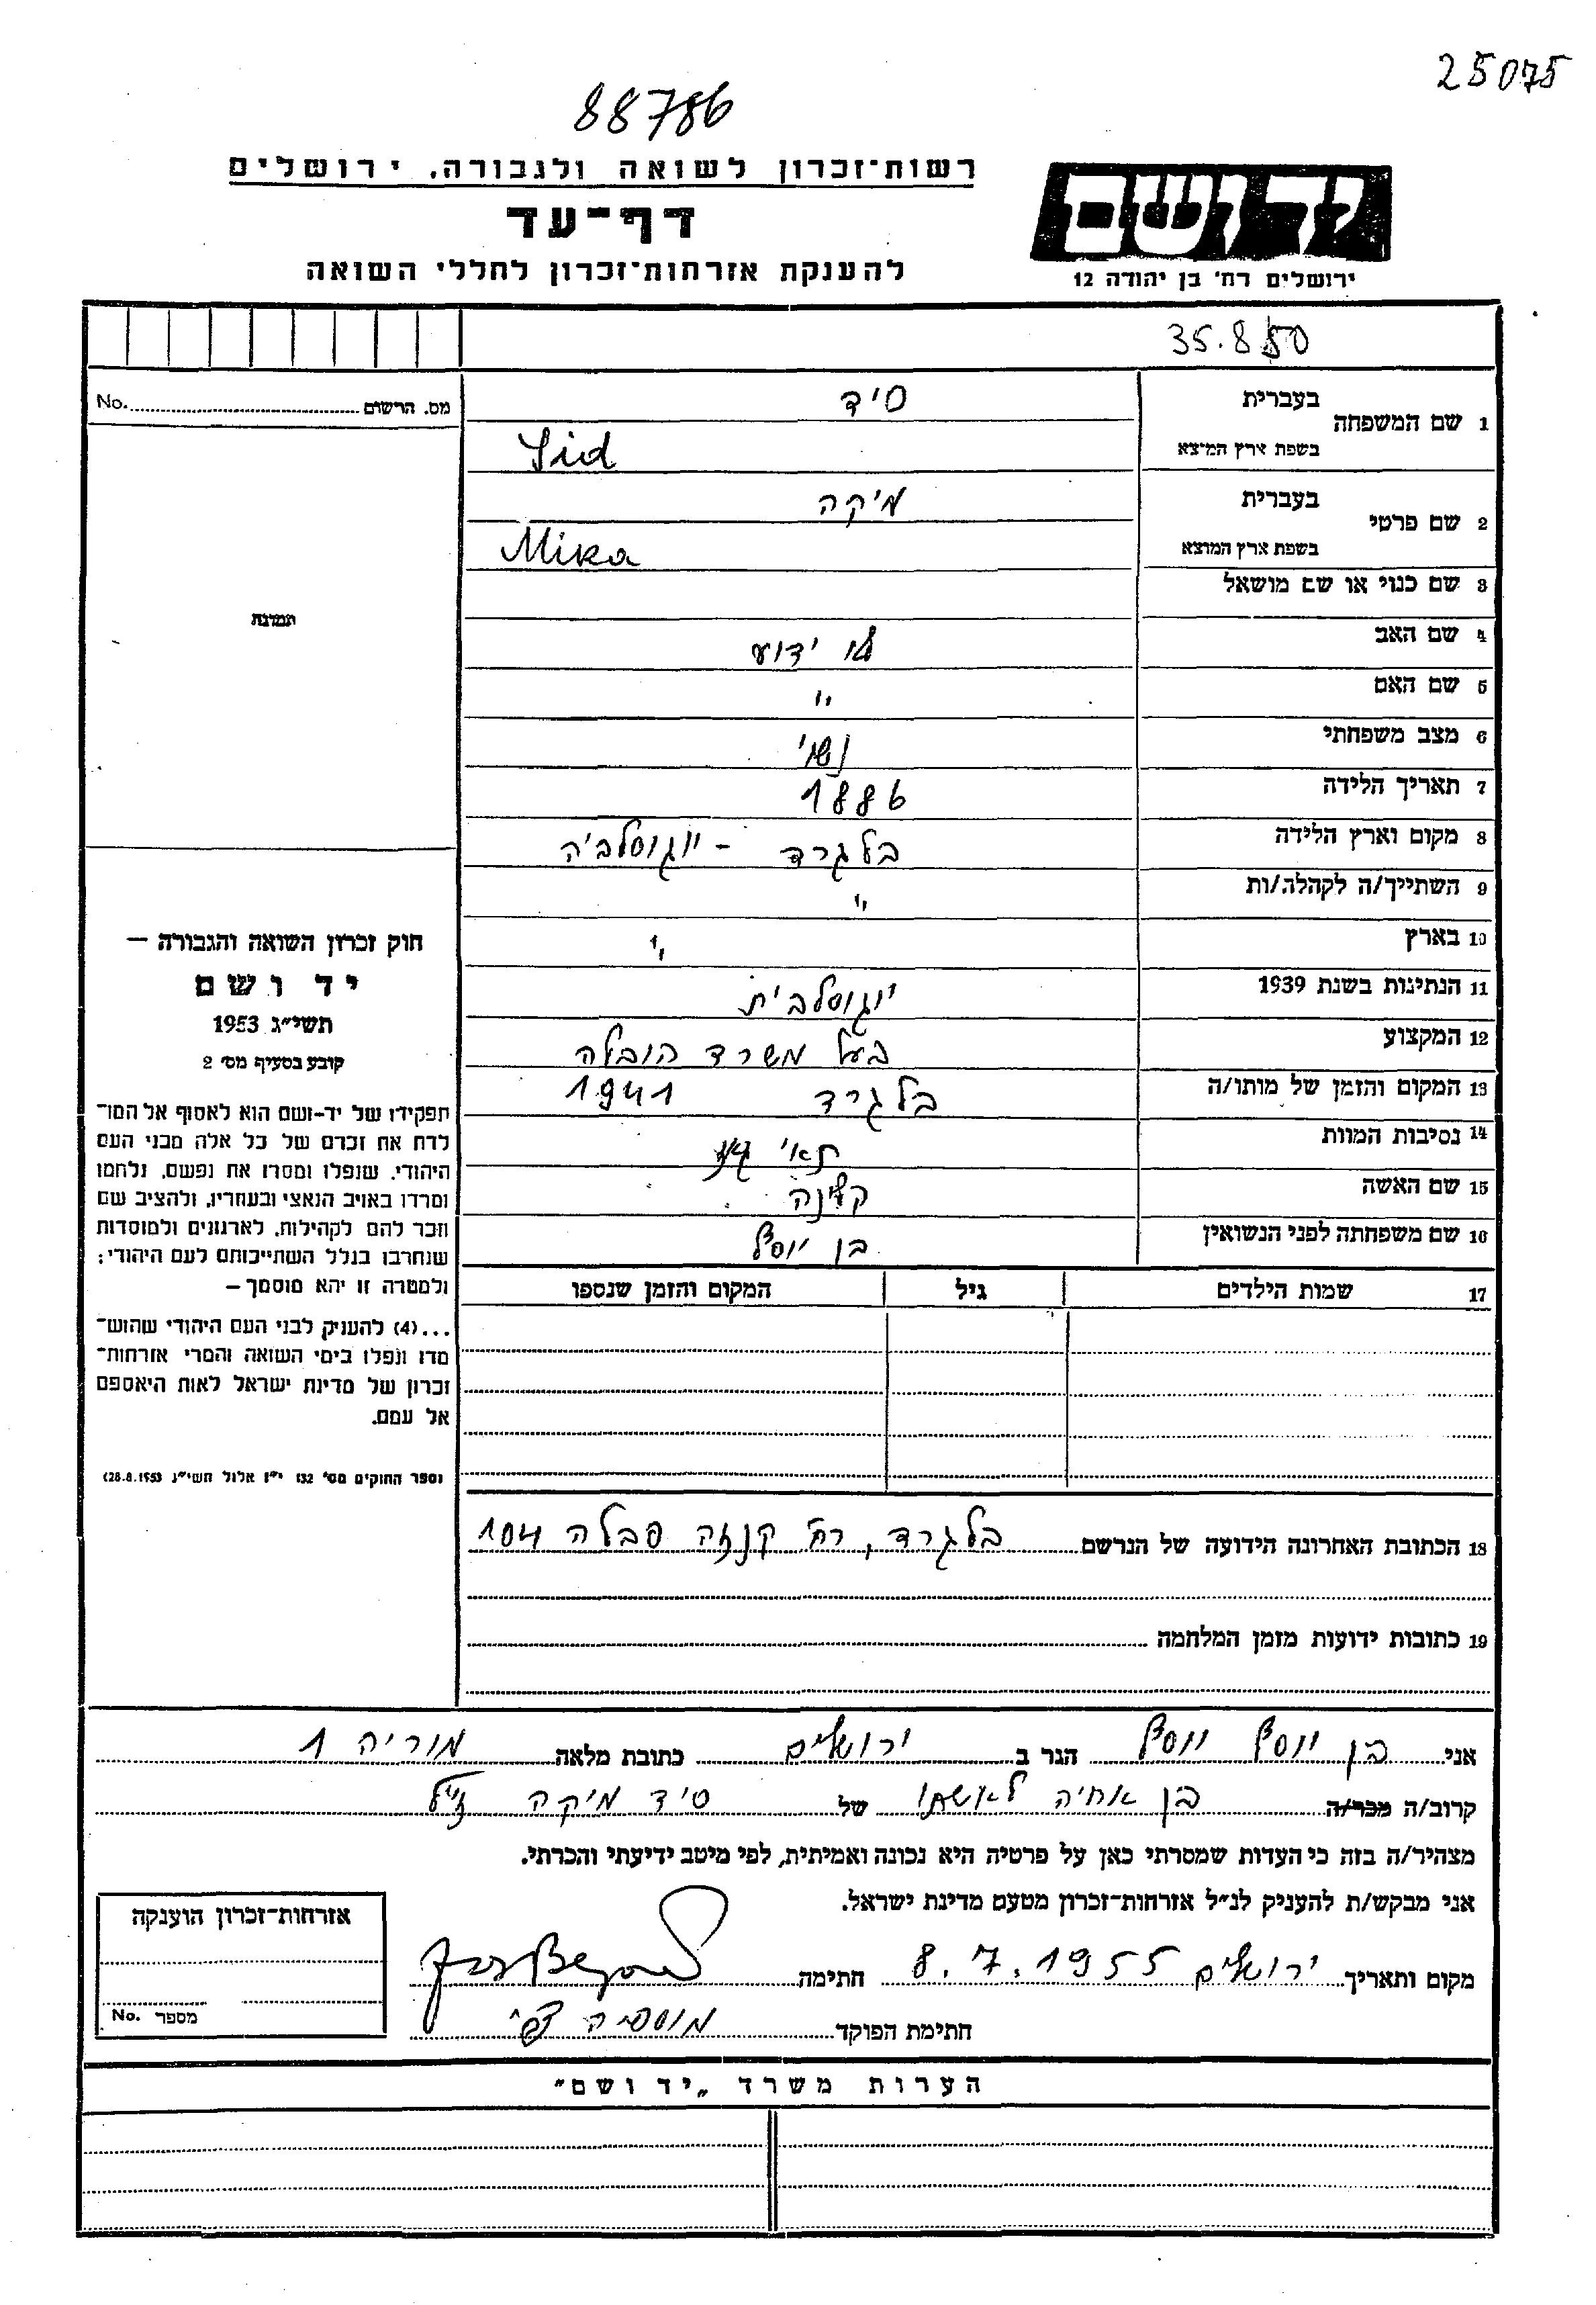 25075
88786
רשות־זכרון לשואה ולגבורה, ירושלים
יד ושם
דף־עד
ירושלים רח' בן יהודה 12
להענקת אזרחות־זכרון לחללי השואה
35.8 50
מס. הרשום No.
1 שם המשפחה
בעברית סיד
בשפת ארץ המוצא Sid
2 שם פרטי
בעברית מיקה
בשפת ארץ המוצא Mika
3 שם כנוי או שם מושאל
תמונה
4 שם האב לא ידוע
5 שם האם "
6 מצב משפחתי נשוי
7 תאריך הלידה 1886
8 מקום וארץ הלידה בלגרד - יוגוסלביה
9 השתייך/ה לקהלה/ות "
10 בארץ "
11 הנתינות בשנת 1939 יוגוסלבית
12 המקצוע בעל משרד הובלה
13 המקום והזמן של מותו/ה בלגרד 1941
14 נסיבות המוות תאי גאז
15 שם האשה
16 שם משפחתה לפני הנשואין בן יוסף
17 שמות הילדים גיל המקום והזמן שנספו
חוק זכרון השואה והגבורה —
יד ושם
תשי"ג 1953
קובע בסעיף מס' 2
תפקידו של יד-ושם הוא לאסוף אל המו־
לדת את זכרם של כל אלה מבני העם
היהודי, שנפלו ומסרו את נפשם, נלחמו
ומרדו באויב הנאצי ובעוזריו, ולהציב שם
וזכר להם לקהילות, לארגונים ולמוסדות
שנחרבו בגלל השתייכותם לעם היהודי;
ולמטרה זו יהא מוסמך —
...(4) להעניק לבני העם היהודי שהוש־
מדו ונפלו בימי השואה והמרי אזרחות־
זכרון של מדינת ישראל לאות היאספם
אל עמם.
(ספר החוקים מס' 132 י"ז אלול תשי"ג 28.8.1953)
18 הכתובת האחרונה הידועה של הנרשם בלגרד, רח' קנזה פבלה 104
19 כתובות ידועות מזמן המלחמה
אני בן יוסף יוסף הגר ב ירושלים כתובת מלאה מוריה 1
קרוב/ה מכר/ה בן אחיה לאשתו של סיד מיקה ז"ל
מצהיר/ה בזה כי העדות שמסרתי כאן על פרטיה היא נכונה ואמיתית, לפי מיטב ידיעתי והכרתי.
אני מבקש/ת להעניק לנ"ל אזרחות־זכרון מטעם מדינת ישראל.
מקום ותאריך ירושלים 8.7.1955 חתימה
חתימת הפוקד
אזרחות־זכרון הוענקה
מספר No.
הערות משרד „יד ושם"